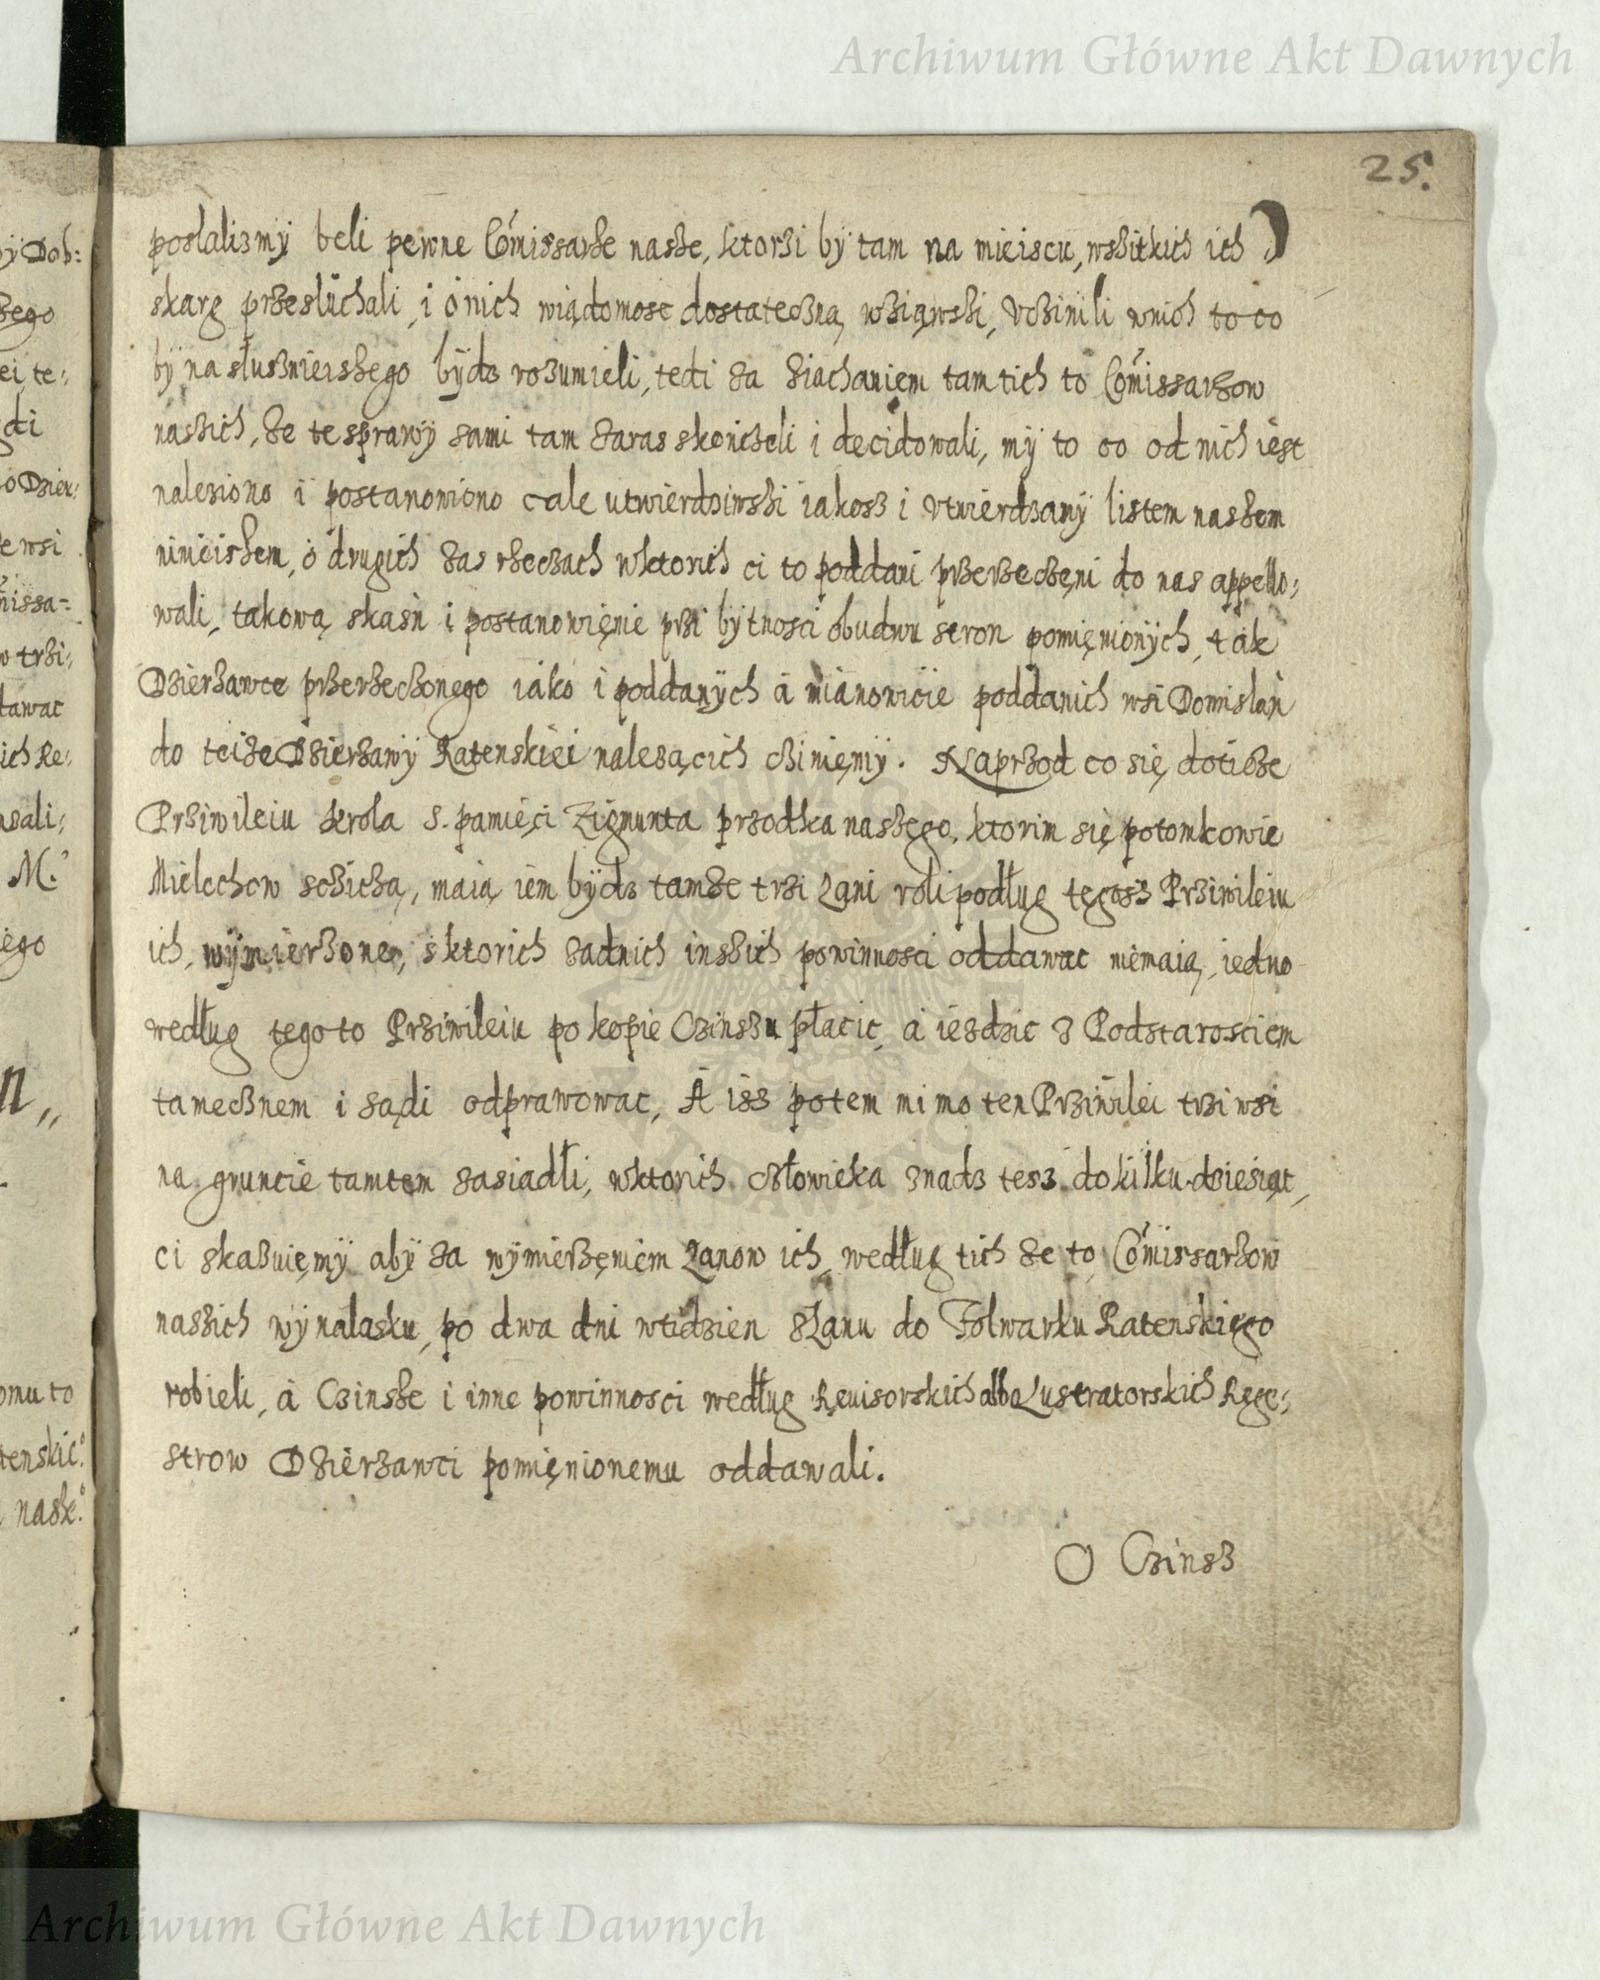 Archiwum Główne Akt Dawnych
25.
poslalizmÿ beli pewne Comissarze nasze, ktorzi bÿ tam na mieiscu, wszitkich ich
skarg przesluchali, i o nich wiadomosc dostateczną wziąwszi, Vczinili wnich to co
bÿ na słusznieiszego bÿdz rozumieli, tedi za ziachaniem tamtich to Comissarzow
naszich, ze te sprawÿ sami tam zaras skonczeli i decidowali, mÿ to co od nich iest
naleziono i postanowiono cale utwierdziwszi iakosz i Vtwierdzamÿ listem naszem
ninieiszem, o drugich zas rzeczach wktorich ci to poddani przerzeczeni do nas appello:
wali, takową skasn i postanowięnie przi bÿtnosci obudwu stron pomięnionÿch, tak
Dzierzawce przerzeczonego iako i poddanÿch a mianowicie poddanich wsi Domislan
do teize Dzierzawÿ Ratenskiei nalezącich czinięmÿ. Naprzod co się doticze
Prziwileiu krola s. pamięci Zigmunta przodka naszego, ktorim się potomkowie
Mielechow sczicza, maią iem bÿdz tamze trzi Łani roli podług tegosz Prziwileiu
ich, wÿmierzone, s ktorich zadnich inszich powinnosci oddawac niemaią, iedno
według tego to Prziwileiu po kopie Czinszu płacic, a iezdzic z Podstarosciem
tamecznem i sądi odprawowac, A isz potem mimo ten Prziwilei trzi wsi
na gruncie tamtem zasiadłi, wktorich człowieka znadz tesz do kilku dziesiąt,
ci skazuięmÿ abÿ za wÿmierzęniem Łanow ich, według tich ze to Comissarzow
naszich wÿnalasku, po dwa dni wtidzien z Łanu do Folwarku Ratenskięgo
robieli, a Czinsze i inne powinnosci według Reuisorskich albo Lustratorskich Rege:
strow Dzierzawci pomięnionemu oddawali.
O Czinsz
Archiwum Główne Akt Dawnych